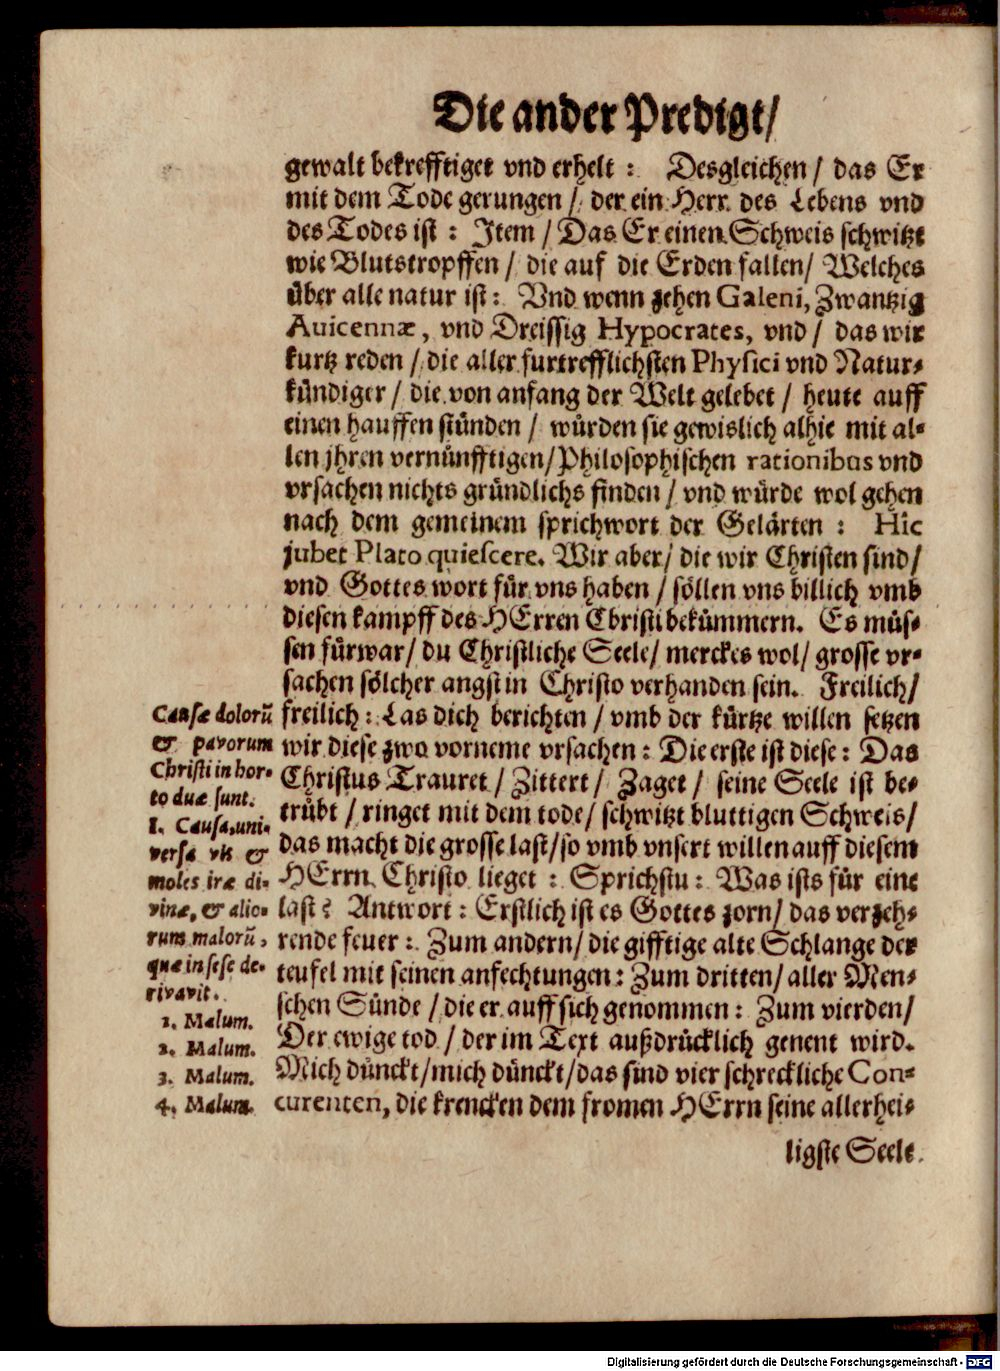 Die ander Predigt/
gewalt bekrefftiget vnd erhelt : Desgleichen / das Er
mit dem Tode gerungen / der ein Herr des Lebens vnd
des Todes ist : Item / Das Er einen Schweis schwitzt
wie Blutstropffen / die auf die Erden fallen/ Welches
über alle natur ist : Vnd wenn zehen Galeni, Zwantzig
Avicennæ, vnd Dreissig Hypocrates, vnd / das wir
kurtz reden / die aller furtrefflichsten Physici vnd Natur-
kündiger / die von anfang der Welt gelebet / heute auff
einen hauffen stünden / würden sie gewislich alhie mit al-
len jhren vernünfftigen/ Philosophischen rationibus vnd
vrsachen nichts gründlichs finden / vnd würde wol gehen
nach dem gemeinem sprichwort der Gelärten : Hîc
jubet Plato quiescere. Wir aber/ die wir Christen sind/
vnd Gottes wort für vns haben / söllen vns billich vmb
diesen kampff des HErren Christi bekümmern. Es müs-
sen fürwar/ du Christliche Seele/ merckes wol/ grosse vr-
sachen sölcher angst in Christo verhanden sein. Freilich/
freilich : Las dich berichten / vmb der kürtze willen setzen
wir diese zwo vorneme vrsachen : Die erste ist diese : Das
Christus Trauret / Zittert / Zaget / seine Seele ist be-
trübt / ringet mit dem tode/ schwitzt bluttigen Schweis/
das macht die grosse last/ so vmb vnsert willen auff diesem
HErrn Christo lieget : Sprichstu : Was ists für eine
last? Antwort : Erstlich ist es Gottes zorn/ das verzeh-
rende feuer : Zum andern/ die gifftige alte Schlange der
teufel mit seinen anfechtungen : Zum dritten/ aller Men-
schen Sünde / die er auff sich genommen : Zum vierden/
Der ewige tod / der im Text außdrücklich genent wird.
Mich dünckt/ mich dünckt/ das sind vier schreckliche Con-
curenten, die krencken dem fromen HErrn seine allerhei-
ligste Seele.
Causæ dolorũ
& pavorum
Christi in hor-
to duæ sunt.
I. Causa, uni-
versa vis &
moles iræ di-
vinæ, & alio-
rum malorũ,
quæ in sese de-
rivavit.
1. Malum.
2. Malum.
3. Malum.
4. Malum.
Digitalisierung gefördert durch die Deutsche Forschungsgemeinschaft - DFG